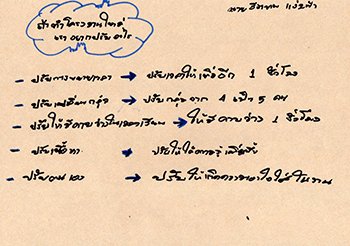 ถ้าทำโครงงานใหม่
เราอยากปรับอะไร
- ปรับการขยายเวลา → ปรับเวลาให้เพิ่มอีก 1 ชั่วโมง
- ปรับเปลี่ยนกลุ่ม → ปรับกลุ่มจาก 4 เป็น 5 คน
- ปรับให้มีคาบว่างในเวลาเรียน → ให้มีคาบว่าง 1 ชั่วโมง
- ปรับเนื้อหา → ปรับให้ได้ความรู้เพิ่มขึ้น
- ปรับตนเอง → ปรับให้เกิดความเอาใจใส่ในงาน